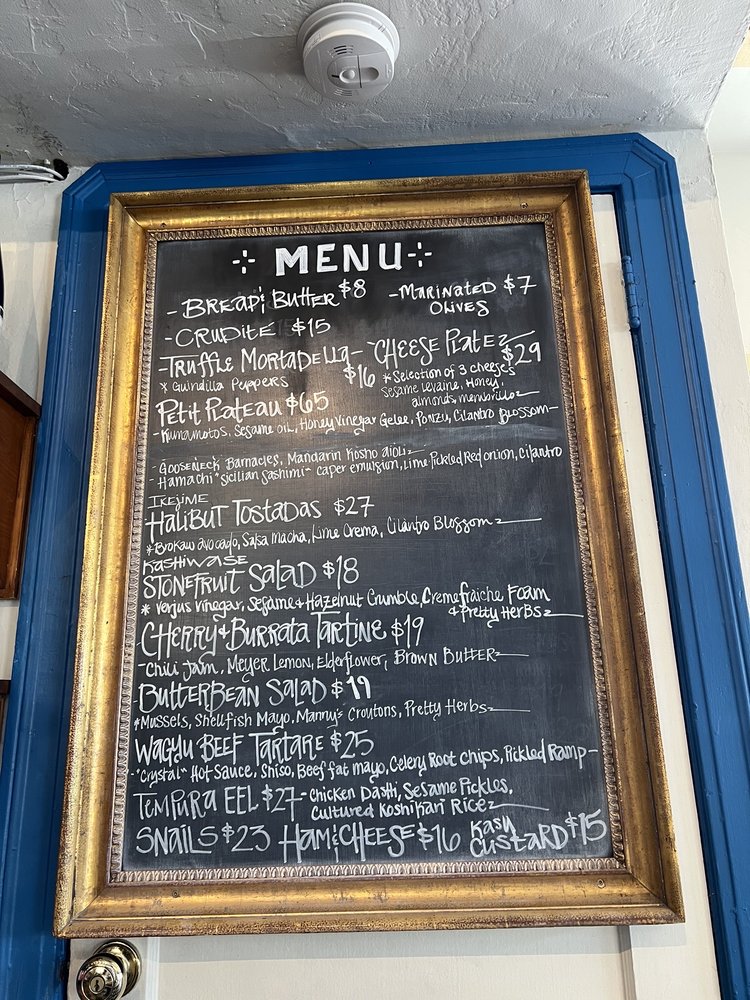 MENU
- BREAD & BUTTER $8
- MARINATED OLIVES $7
- CRUDITÉ $15
- TRUFFLE MORTADELLA - $16
* Guindilla Peppers
- CHEESE PLATE $29
* Selection of 3 cheeses
Sesame Levaine, Honey,
almonds, membrillo
PETIT PLATEAU $65
- Kumamotos, Sesame oil, Honey Vinegar Gelee, Ponzu, Cilantro Blossom -
- Gooseneck Barnacles, Mandarin Kosho aioli
- Hamachi "sicilian sashimi" caper emulsion, Lime Pickled Red onion, cilantro
IKEJIME
HALIBUT TOSTADAS $27
* Brokaw avocado, Salsa macha, Lime Crema, Cilantro Blossom
KASHIWASE
STONEFRUIT SALAD $18
* Verjus Vinegar, Sesame & Hazelnut Crumble, Creme fraiche Foam
& Pretty Herbs
CHERRY & BURRATA TARTINE $19
- Chili Jam, Meyer Lemon, Elderflower, Brown Butter
BUTTERBEAN SALAD $19
* Mussels, Shellfish Mayo, Manny's Croutons, Pretty Herbs
WAGYU BEEF TARTARE $25
- "Crystal" Hot Sauce, Shiso, Beef fat mayo, Celery Root chips, Pickled Ramp -
TEMPURA EEL $27 - Chicken Dashi, Sesame Pickles,
Cultured Koshikari Rice
SNAILS $23 HAM & CHEESE $16 KASU CUSTARD $15